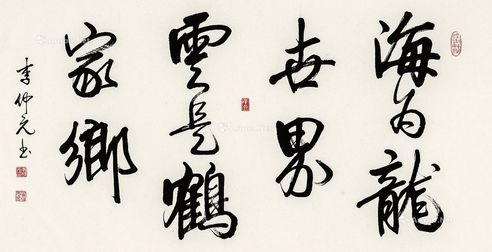 海为龍
世界
雲是鶴
家鄉
李仲元书